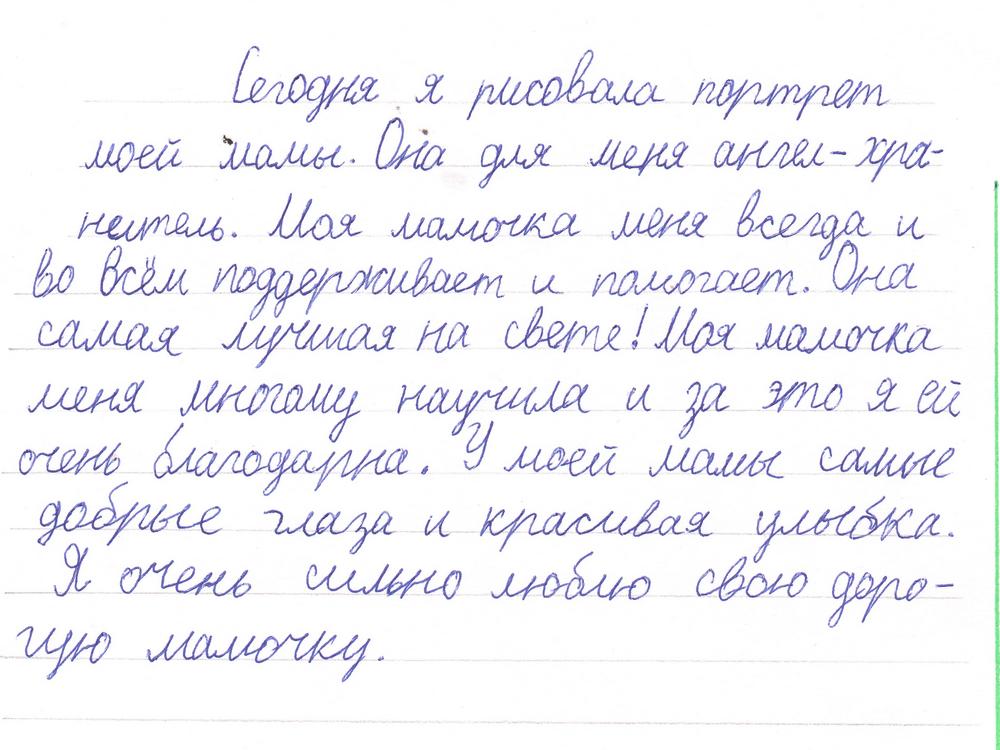 Сегодня я рисовала портрет
моей мамы. Она для меня ангел-хра-
нитель. Моя мамочка меня всегда и
во всём поддерживает и помогает. Она
самая лучшая на свете! Моя мамочка
меня многому научила и за это я ей
очень благодарна. У моей мамы самые
добрые глаза и красивая улыбка.
Я очень сильно люблю свою доро-
гую мамочку.